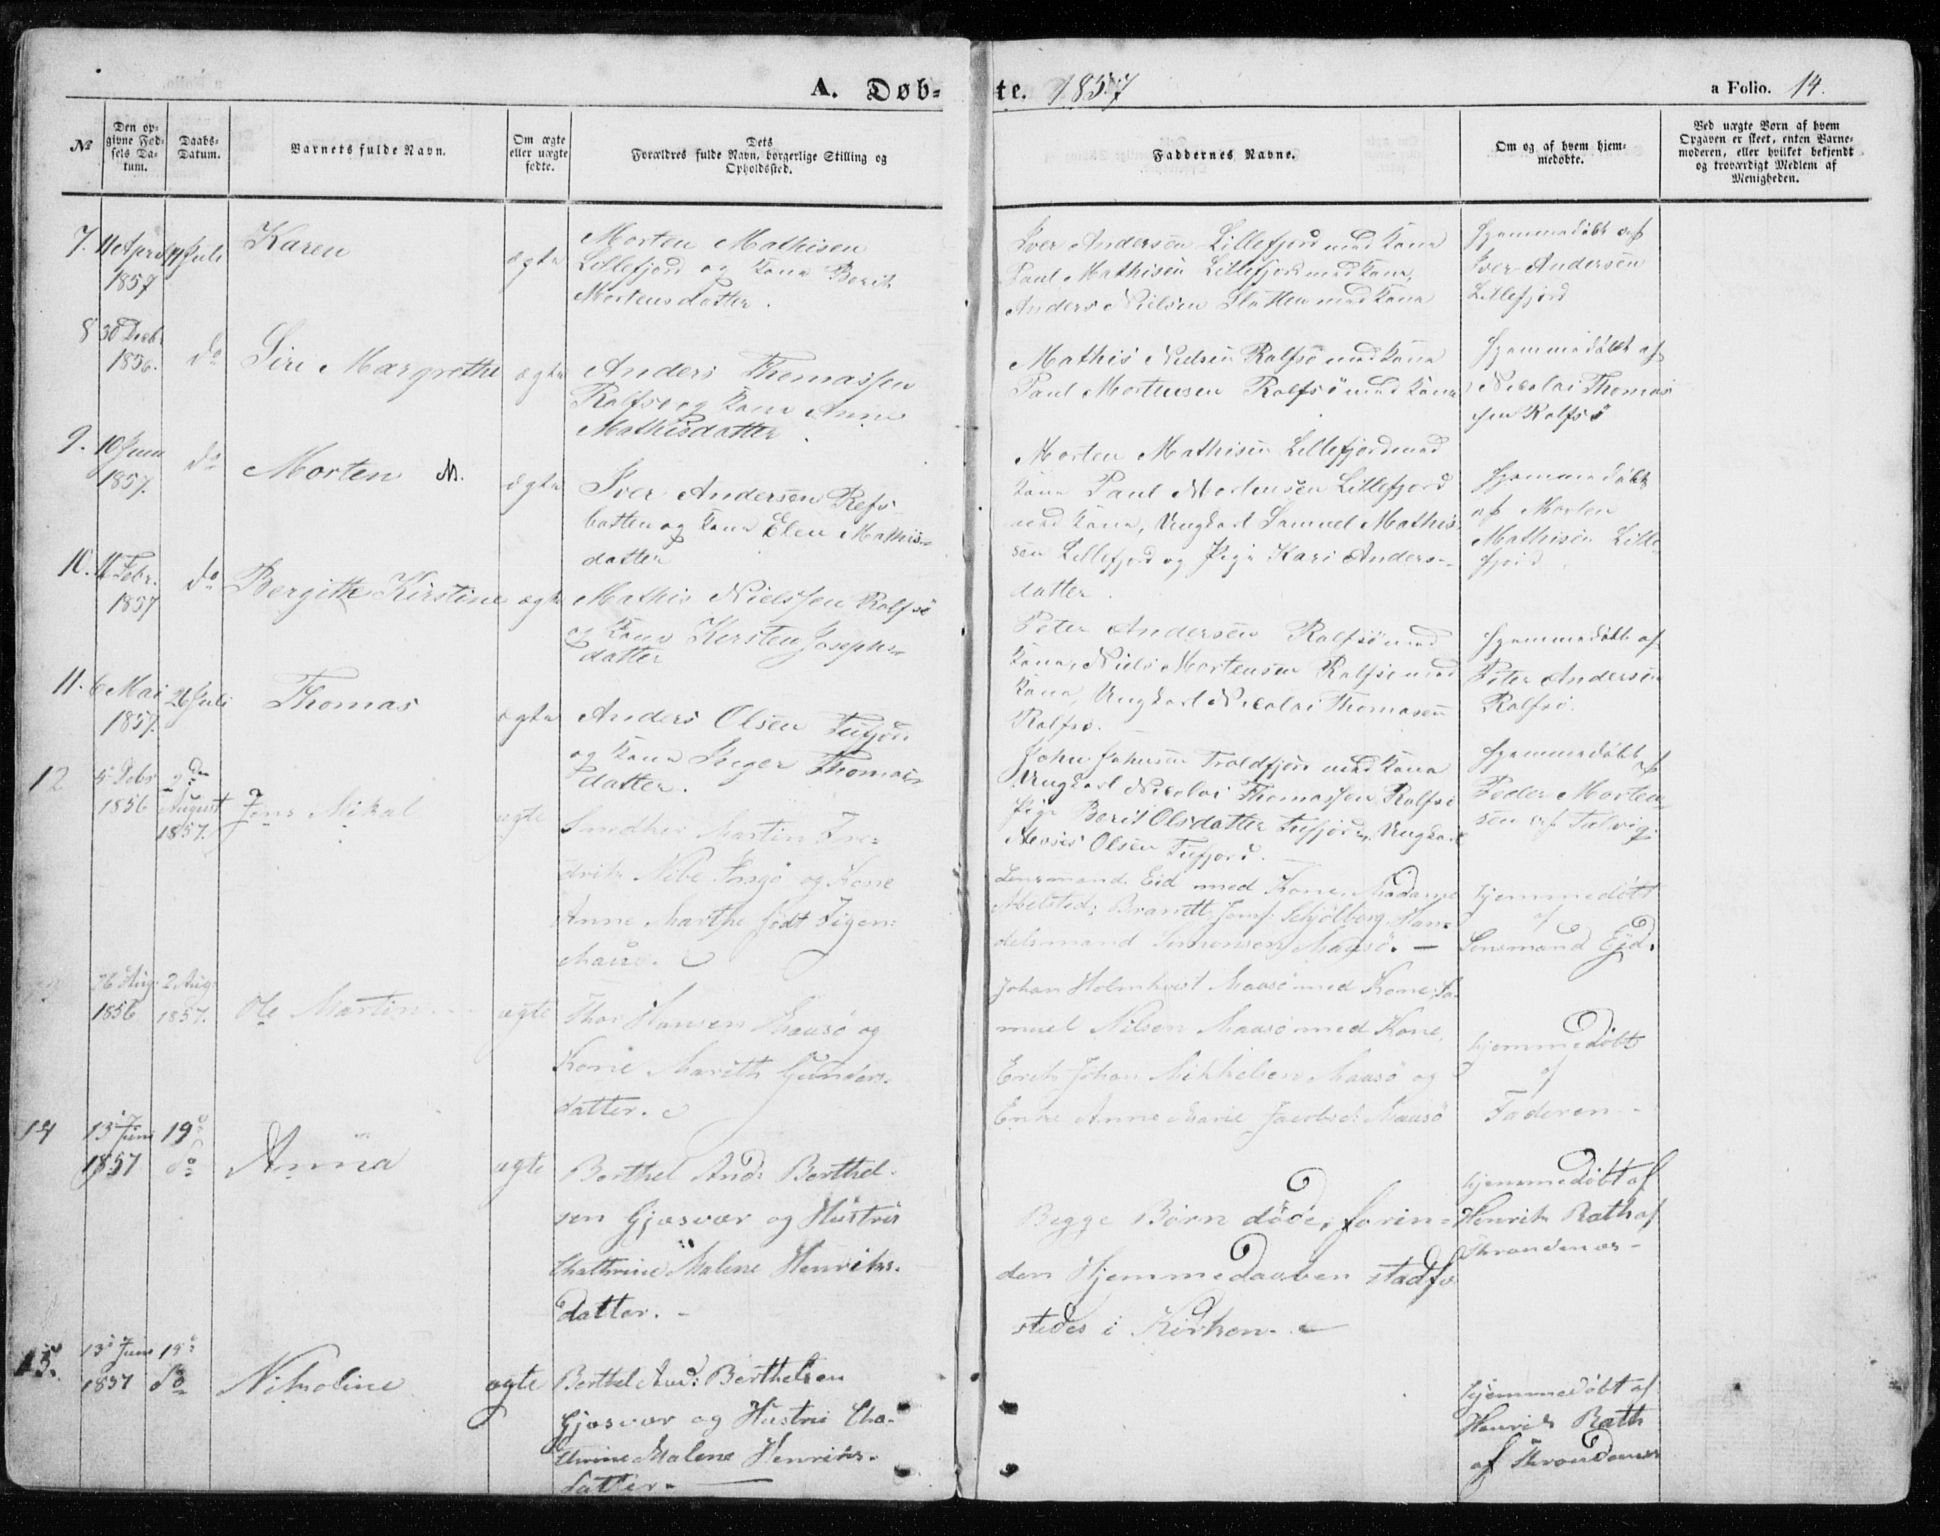 A. Døbte. 1857
a Folio. 14.
No
Den opgivne Fødsels Datum.
Daabs-Datum.
Barnets fulde Navn.
Om ægte eller uægte fødte.
Dets Forældres fulde Navn, borgerlige Stilling og Opholdssted.
Faddernes Navne.
Om og af hvem hjemmedøbte.
Ved uægte Børn af hvem Opgaven er skeet, enten Barnemoderen, eller hvilket bekjendt og troværdigt Medlem af Menigheden.
7. 11 April 1857
Juli
Karen
ægte
Morten Mathisen
Lillefjord og Kone Berit
Mortensdatter.
Iver Andersen Lillefjord med Kone
Paul Mathisen Lillefjord med Kone,
Anders Nielsen Slotten med Kone
hjemmedöbt af
Iver Andersen
Lillefjord
8 30 Decb. 1856.
do
Siri Margrethe
ægte
Anders Thomassen
Rolfsö og Kone Anne
Mathisdatter.
Mathis Nielsen Rolfsö med Kone
Paul Mortensen Rolfsö med Kone
hjemmedöbt af
Nicolai Thomas
sen Rolfsö
9. 10 Juni 1857.
do
Morten M.
ægte
Iver Andersen Refs-
botten og Kone Elen Mathis-
datter
Morten Mathisen Lillefjord med
Kone Paul Mortensen Lillefjord
med Kone, Ungkarl Samuel Mathis
sen Lillefjord og Pige Kari Anders-
datter.
hjemmedöbt
af Morten
Mathisen Lille
fjord
10. 11 Febr. 1857
do
Bergithe Kirstine
ægte
Mathis Nielssen Rolfsö
og Kone Kersten Josephs-
datter
Peter Andersen Rolfsö med
Kone, Niels Mortensen Rolfsö med
Kone, Ungkarl Nicolai Thomasen
Rolfsö.
hjemmedöbt af
Peter Andersen
Rolfsö.
11. 6 Mai 1857.
26 Juli
Thomas
ægte
Anders Olsen Tufjord
og Kone Inger Thomas-
datter.
John Johnsen Troldfjord med Kone
Ungkarl Nicolai Thomassen Rolfsö
Pige Berit Olsdatter Tufjord, Ungkarl
Olsen Tufjord.
hjemmedöbt af
Peder Morten
sen af Talvig.
12
1856
2den August 1857.
Jens Mikal
ægte
Martin Fre-
drik Nibe Ingö og Kone
Anne Marthe födt
Lensmand Eid med Kone, Madame
Brandt, Jomf. Schjölberg, Han-
delsmand Simonsen Maasö. —
hjemmedöbt
af
Lensmand Ejd.
26 Aug. 1856
2 Aug. 1857.
Ole Martin.
ægte
Thor Hansen Maasö og
Kone Marith Gunders-
datter.
Johan Holmkvist Maasö med Kone, Sa-
muel Nilsen Maasö med Kone,
Erik Johan Mikkelsen Maasö og
Enke Anne Marie Jacobsd. Maasö
hjemmedöbt
af
Faderen —
14 13 Juni 1857
19. do
Anna
ægte
Berthel And: Berthel-
sen Gjæsvær og Hustru
Chathrine Malene Henriks-
datter. —
Begge Börn döde, forin-
den Hjemmedaaben stadfæ
stedes i Kirken. —
hjemmedöbt af
Henrik Rath af
15. 13 Juni 1857
19. do
Nikoline
ægte
Berthel And: Berthelsen
Gjæsvær og Hustru Cha-
thrine Malene Henriks-
datter. —
hjemmedöbt af
Henrik Rath
af